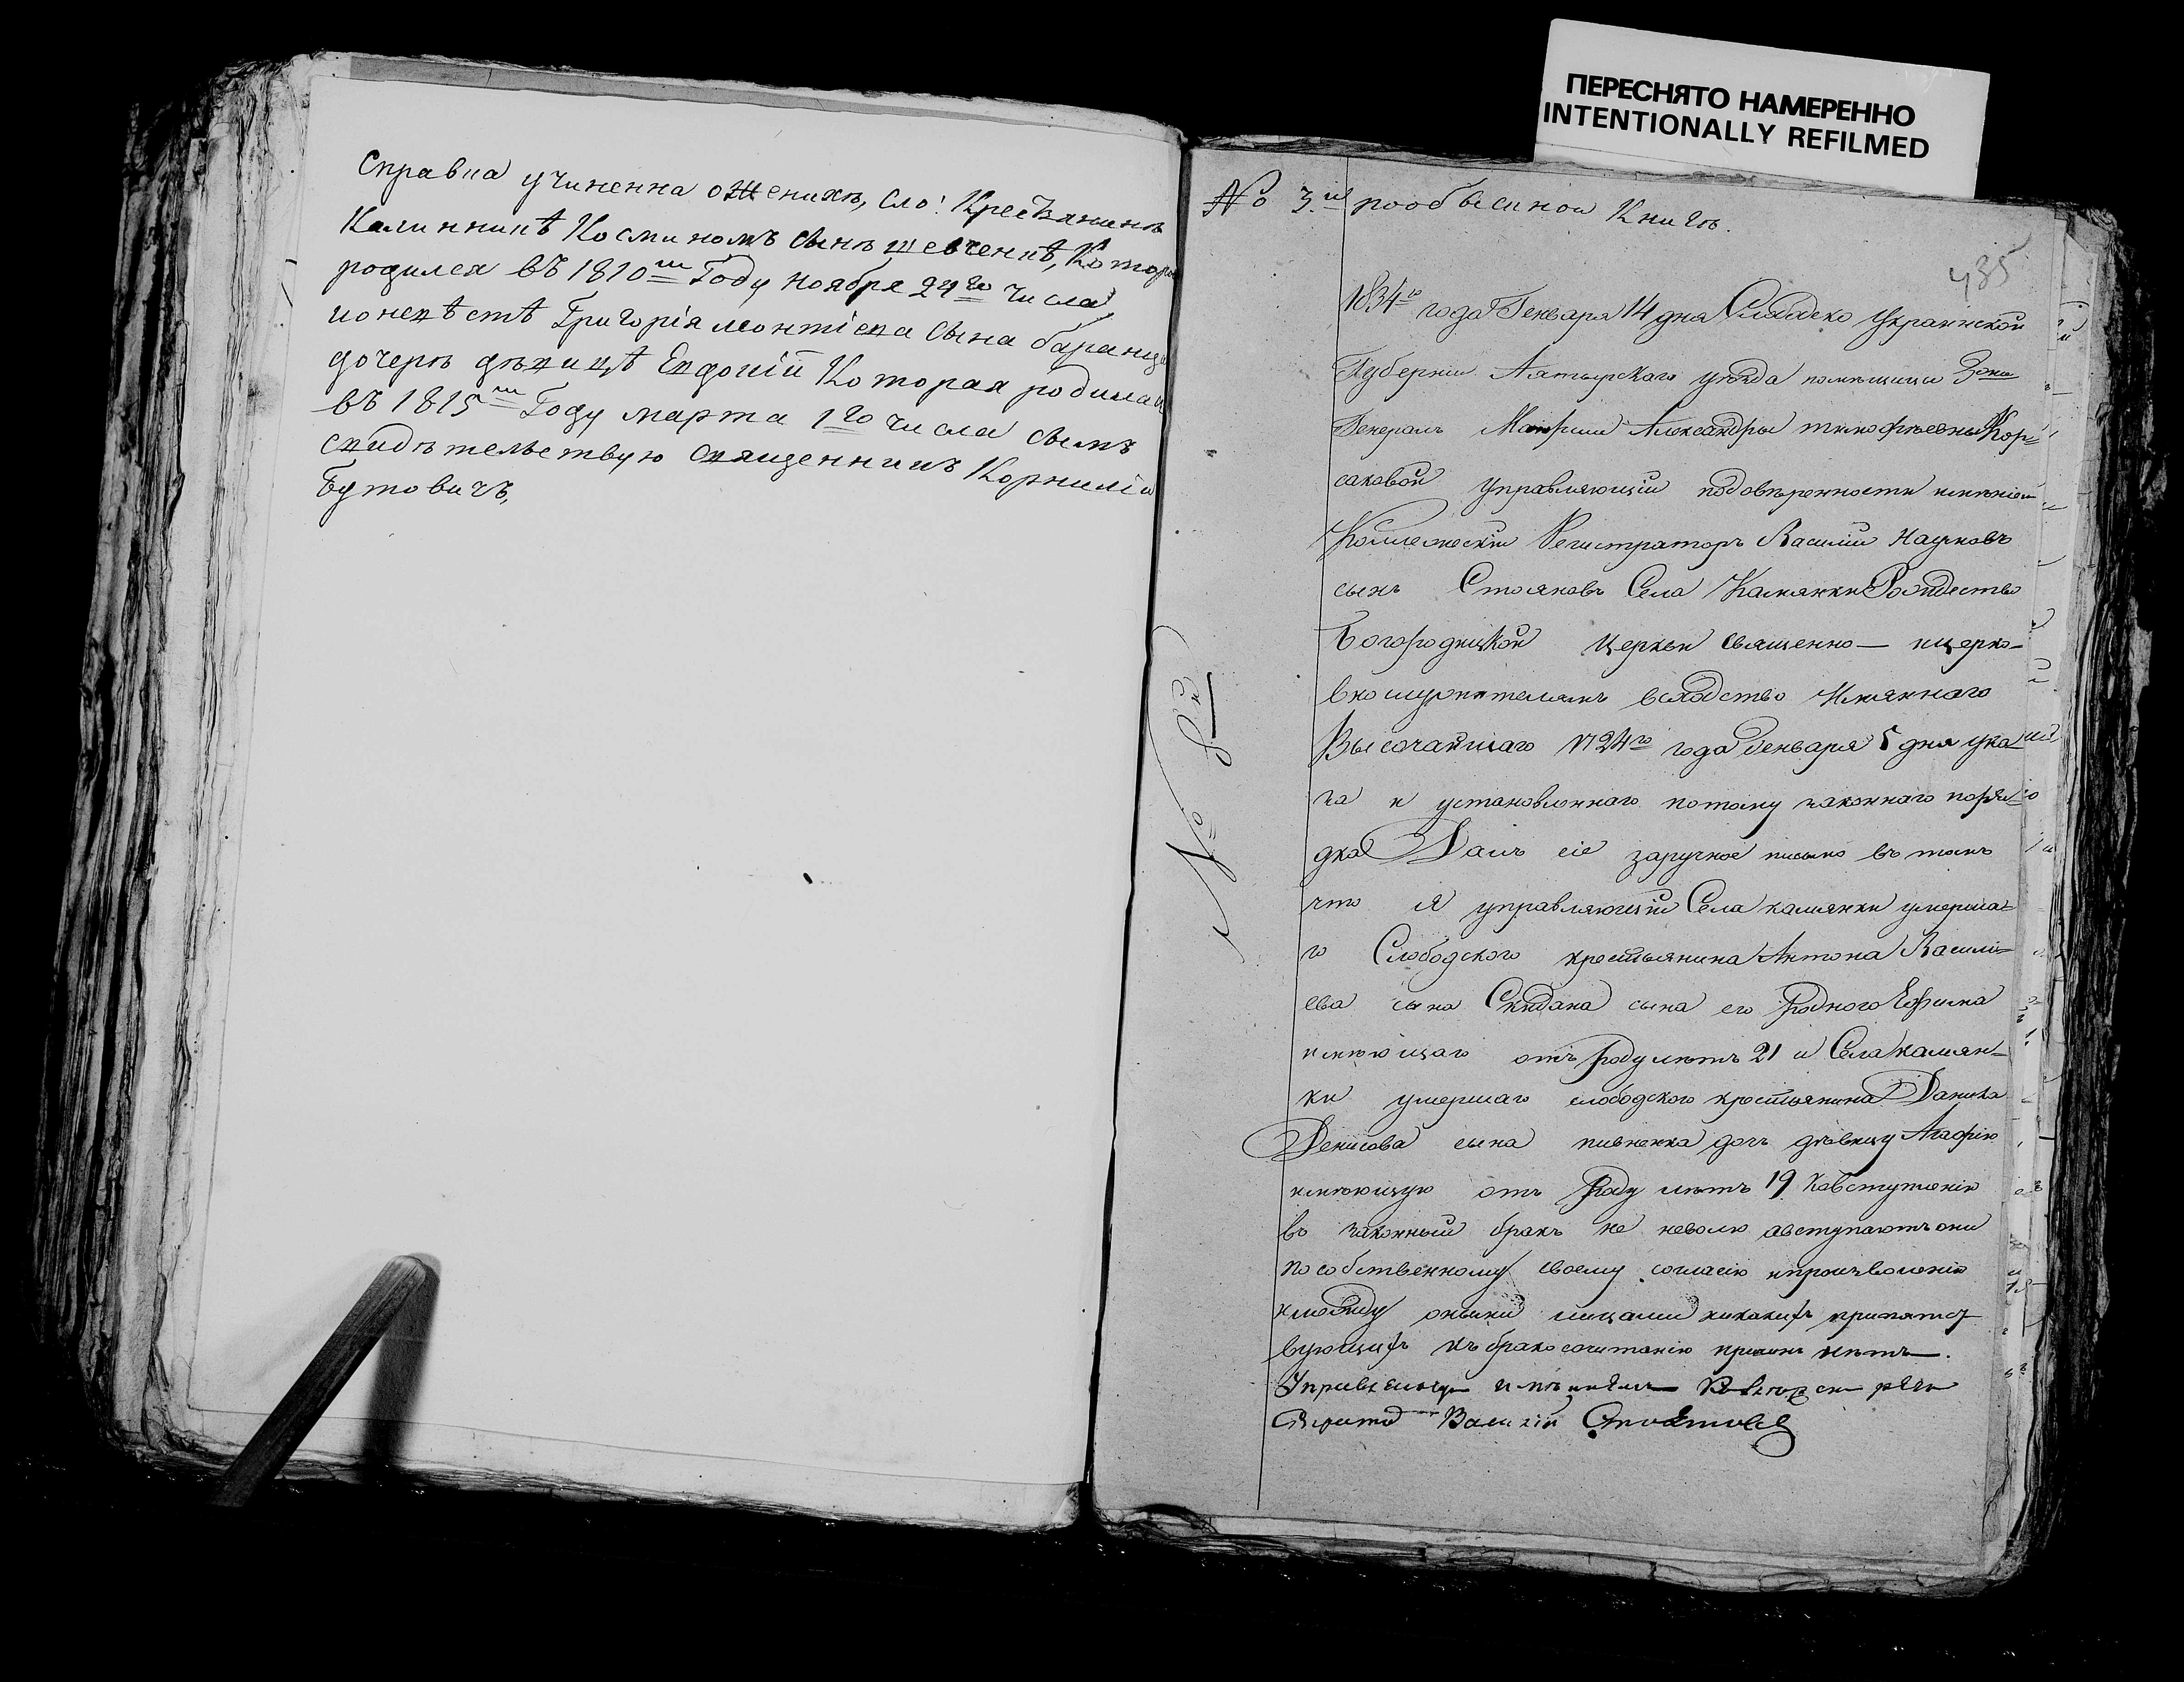 Справка учиненна оженихѣ, сло: Крестянинѣ
Калинникѣ Косминомъ сынѣ шевченкѣ, Которы
родился въ 1810мъ Году ноября 24го числа,
ионевѣстѣ Григорія леонтіева сына баранца
дочерѣ дѣвицѣ Евдокіи Которая родилас
въ 1815мъ Году марта 1го числа съимъ
свидѣтельствую священникъ Корнилій
Бутовичъ,
ПЕРЕСНЯТО НАМЕРЕННО
INTENTIONALLY REFILMED
№ 3й пообыскной Книгѣ.
435
1834го года Генваря 14 дня Слободско Украинской
Губерніи Ахтырскаго уѣзда помѣщицы Гжи
Генералъ Маіорши Александры тимофѣевны Кор=
саковой Управляющій подовѣренности имѣніем
Коллежскій Регистраторъ Василій Наумовъ
сынъ Стояновъ Села Камянки Рождество
Богородицкой Церкви Священно— ицерко—
вно служителямъ вслѣдство Имяннаго
Высочайшаго 1724го года Генваря 5 дня ука—
за и установленнаго потому законнаго поря—
дка Далъ сіе заручное письмо въ томъ
что я управляющій Села камянки умерша=
го Слободского крестьянина Антона Василі=
ева сына Скидана сына его Родного Ефима
имѣющаго отъ Роду лѣтъ 21 и Села камян—
ки умершаго слободского крестьянина Данила
Денисова сына пивненка дочь дѣвицу Агафію
имѣющую отъ Роду лѣтъ 19 Ковступленію
въ законный бракъ не неволю авступаютъ они
по собственному своему согласію ипроизволенію
имежду оными лицами никакихъ препятст
вующихъ къ бракосочитанію причинъ нѣтъ—.
Управляющи имѣніемъ
Василій Стояновъ
№ 83